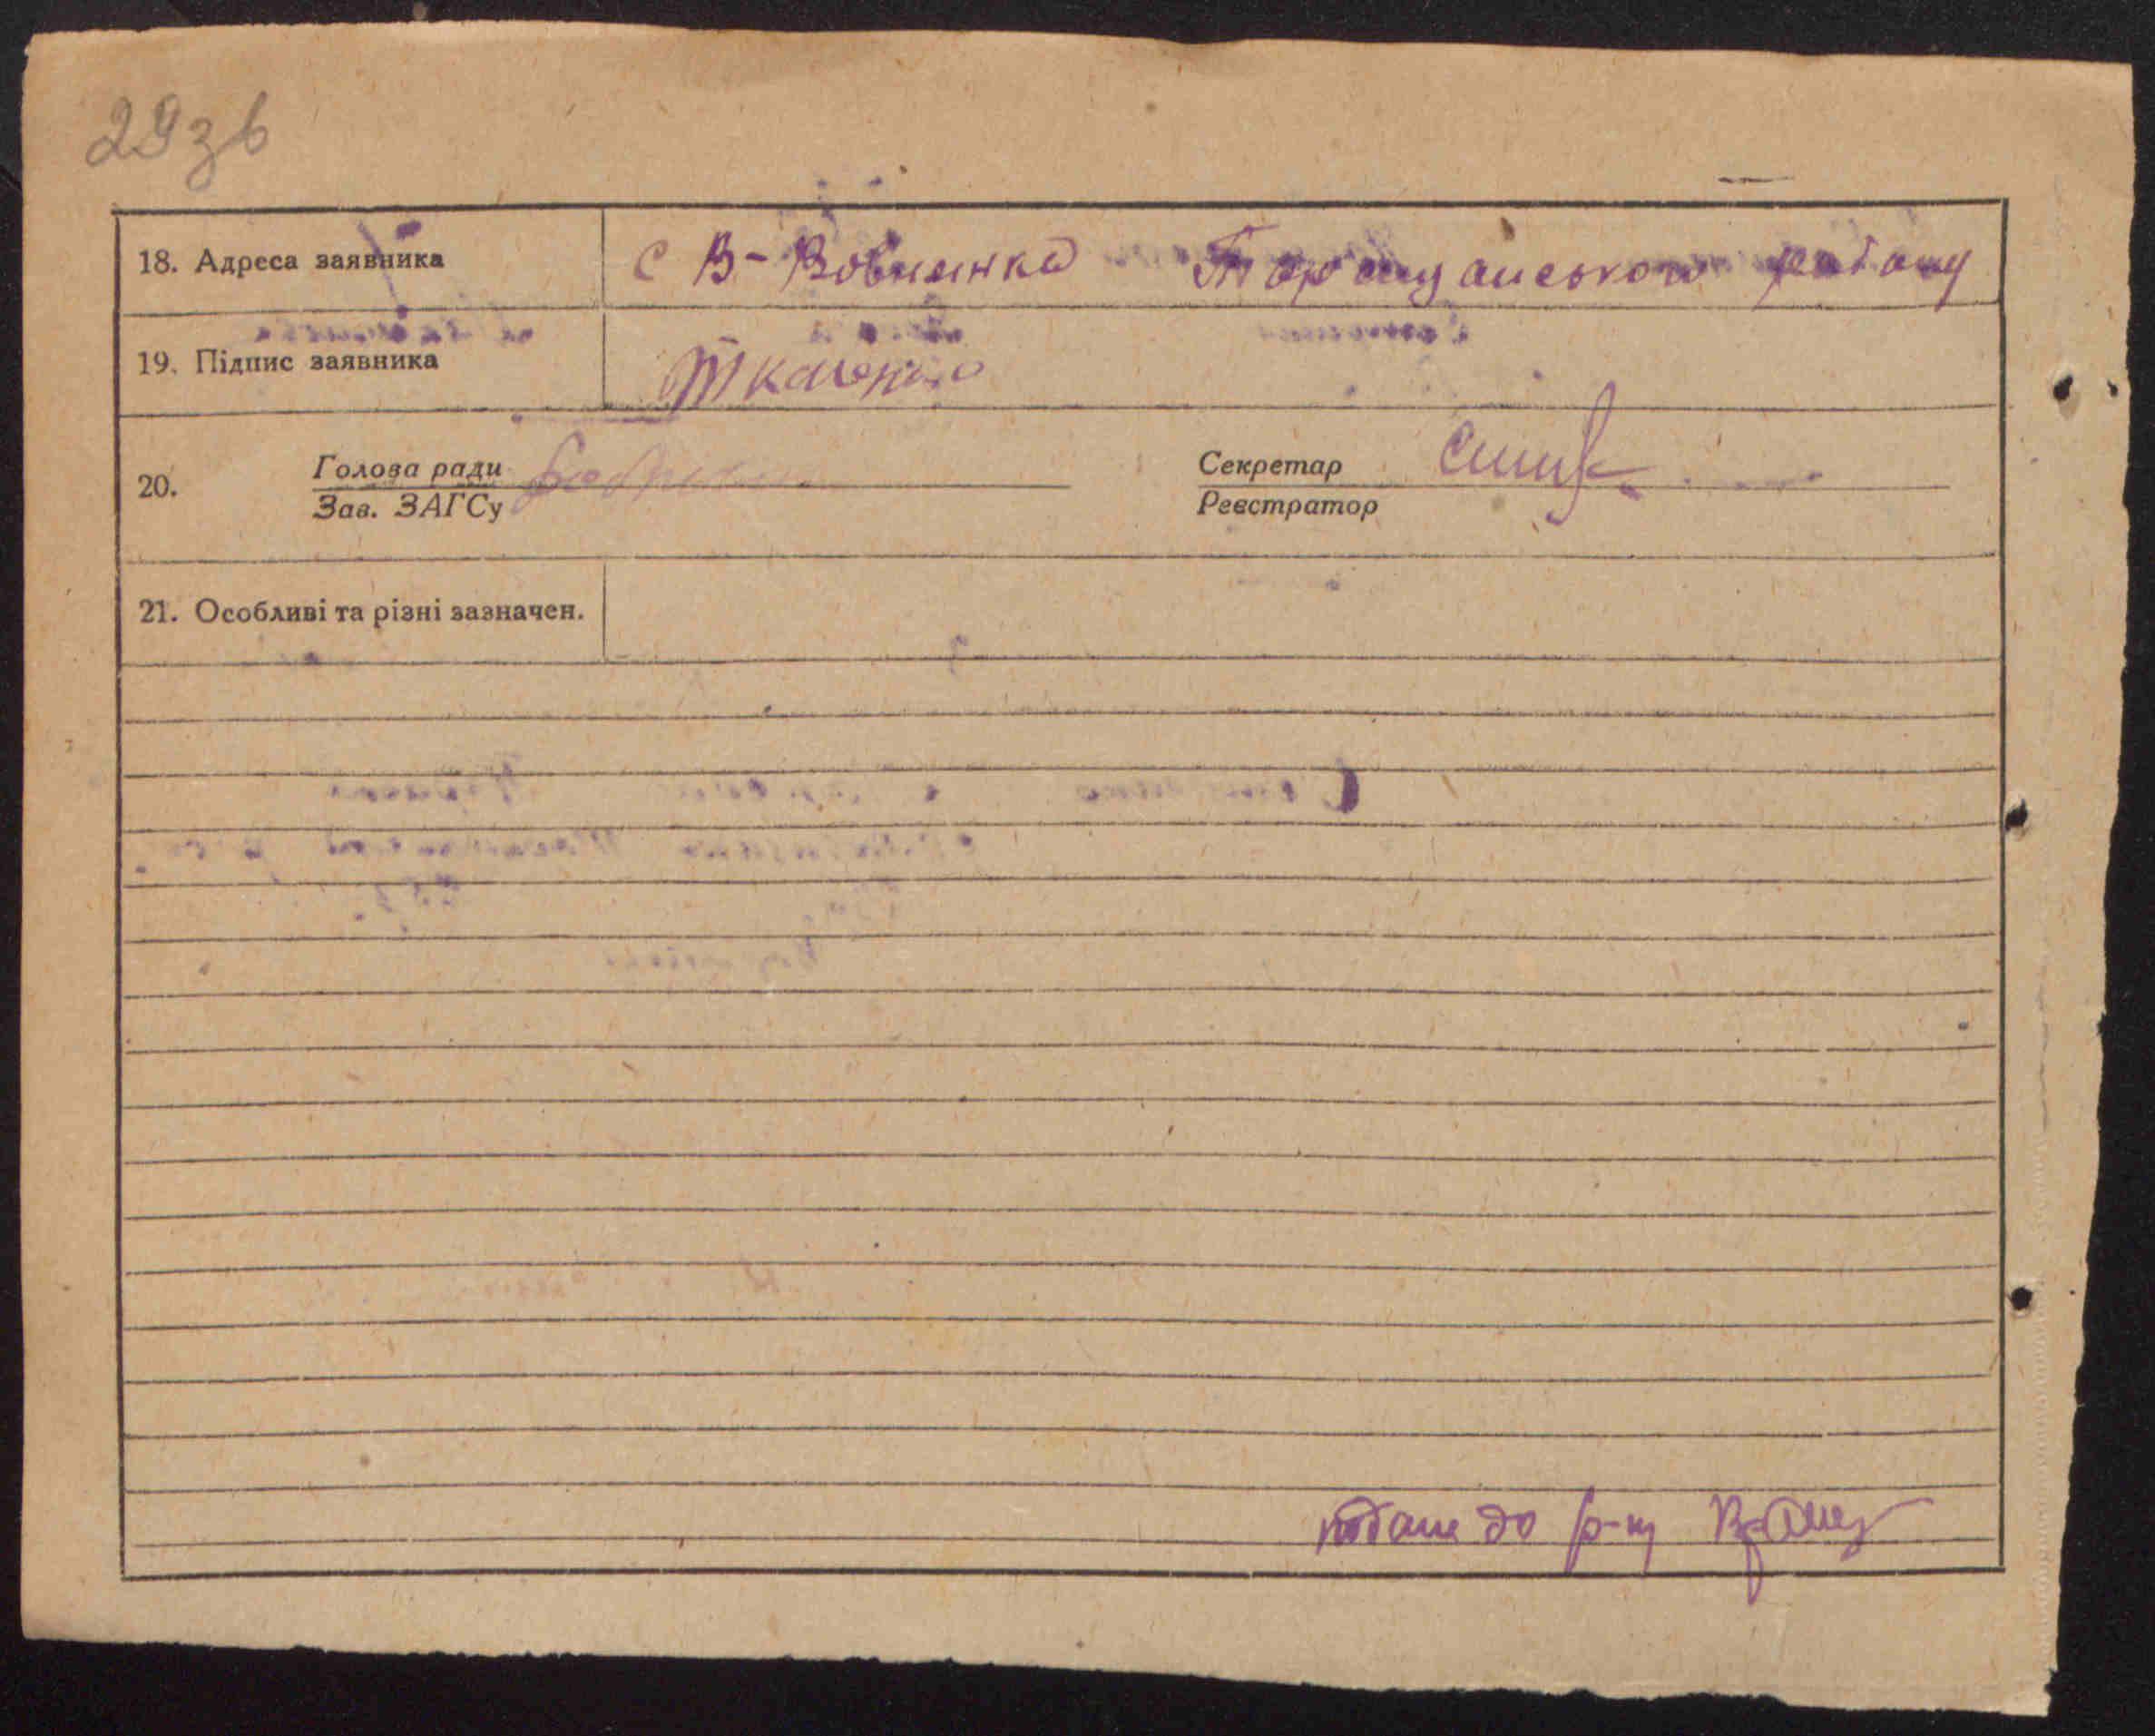 29зв
18. Адреса заявника с В-Вовнянка Таращанського району
19. Підпис заявника Ткаченко
20. Голова ради Секретар
Зав. ЗАГСу Реєстратор
21. Особливі та різні зазначен.
до р-ну